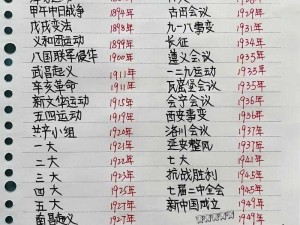 甲午中日战争 1894年 古田会议 1929年
戊戌变法 1898年 九一八事变 1931年
义和团运动 1899年 长征 1934年
八国联军侵华 1900年 遵义会议 1935年
武昌起义 1911年 一二九运动 1935年
辛亥革命 1911年 瓦窑堡会议 1935年
新文化运动 1915年 会宁会议 1936年
五四运动 1919年 西安事变 1936年
共产小组 1920年 洛川会议 1937年
一大 1921年 延安整风 1937年
二大 1922年 七大 1941年
三大 1923年 抗战胜利 1945年
四大 1925年 七届二中全会 1945年
五大 1927年 新中国成立 1949年
南昌起义 1927年 1949年